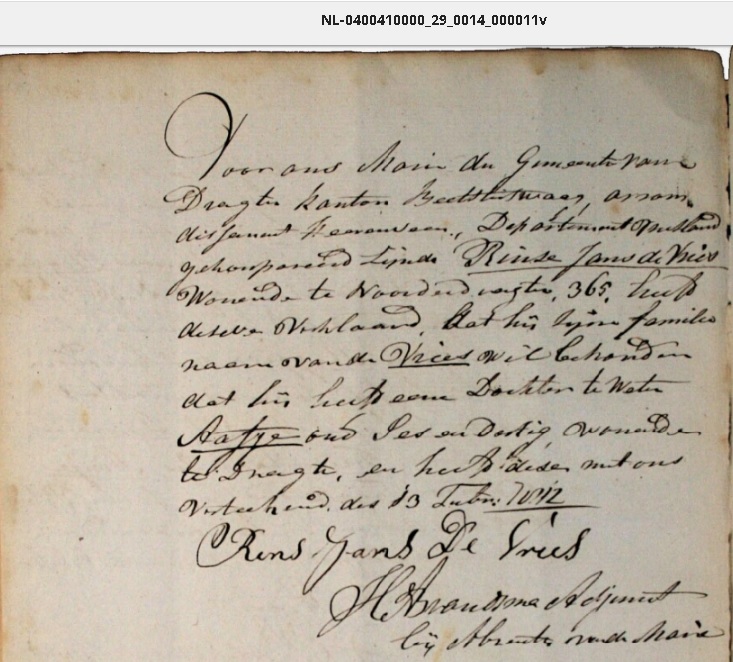 NL-0400410000_29_0014_000011v
Voor ons Maire der Gemeente van
Dragten kanton Beetsterzwaag, arron
dissement Heerenveen, Departement Vriesland
gekompareerd zijnde Rinse Jans de Vries
Wonende te Noorderdragten, 365, heeft
deselve Verklaard, dat hij zijn familie
naam van de Vries wil behouden
dat hij heeft een Dochter te Weten
Aafye oud Ses en Dertig wonende
te Dragten, en heeft dese met ons
Verteekend. des 13 Febr: 1812
Rens Jans De Vries
Adjunct
bij Absentie van de Maire